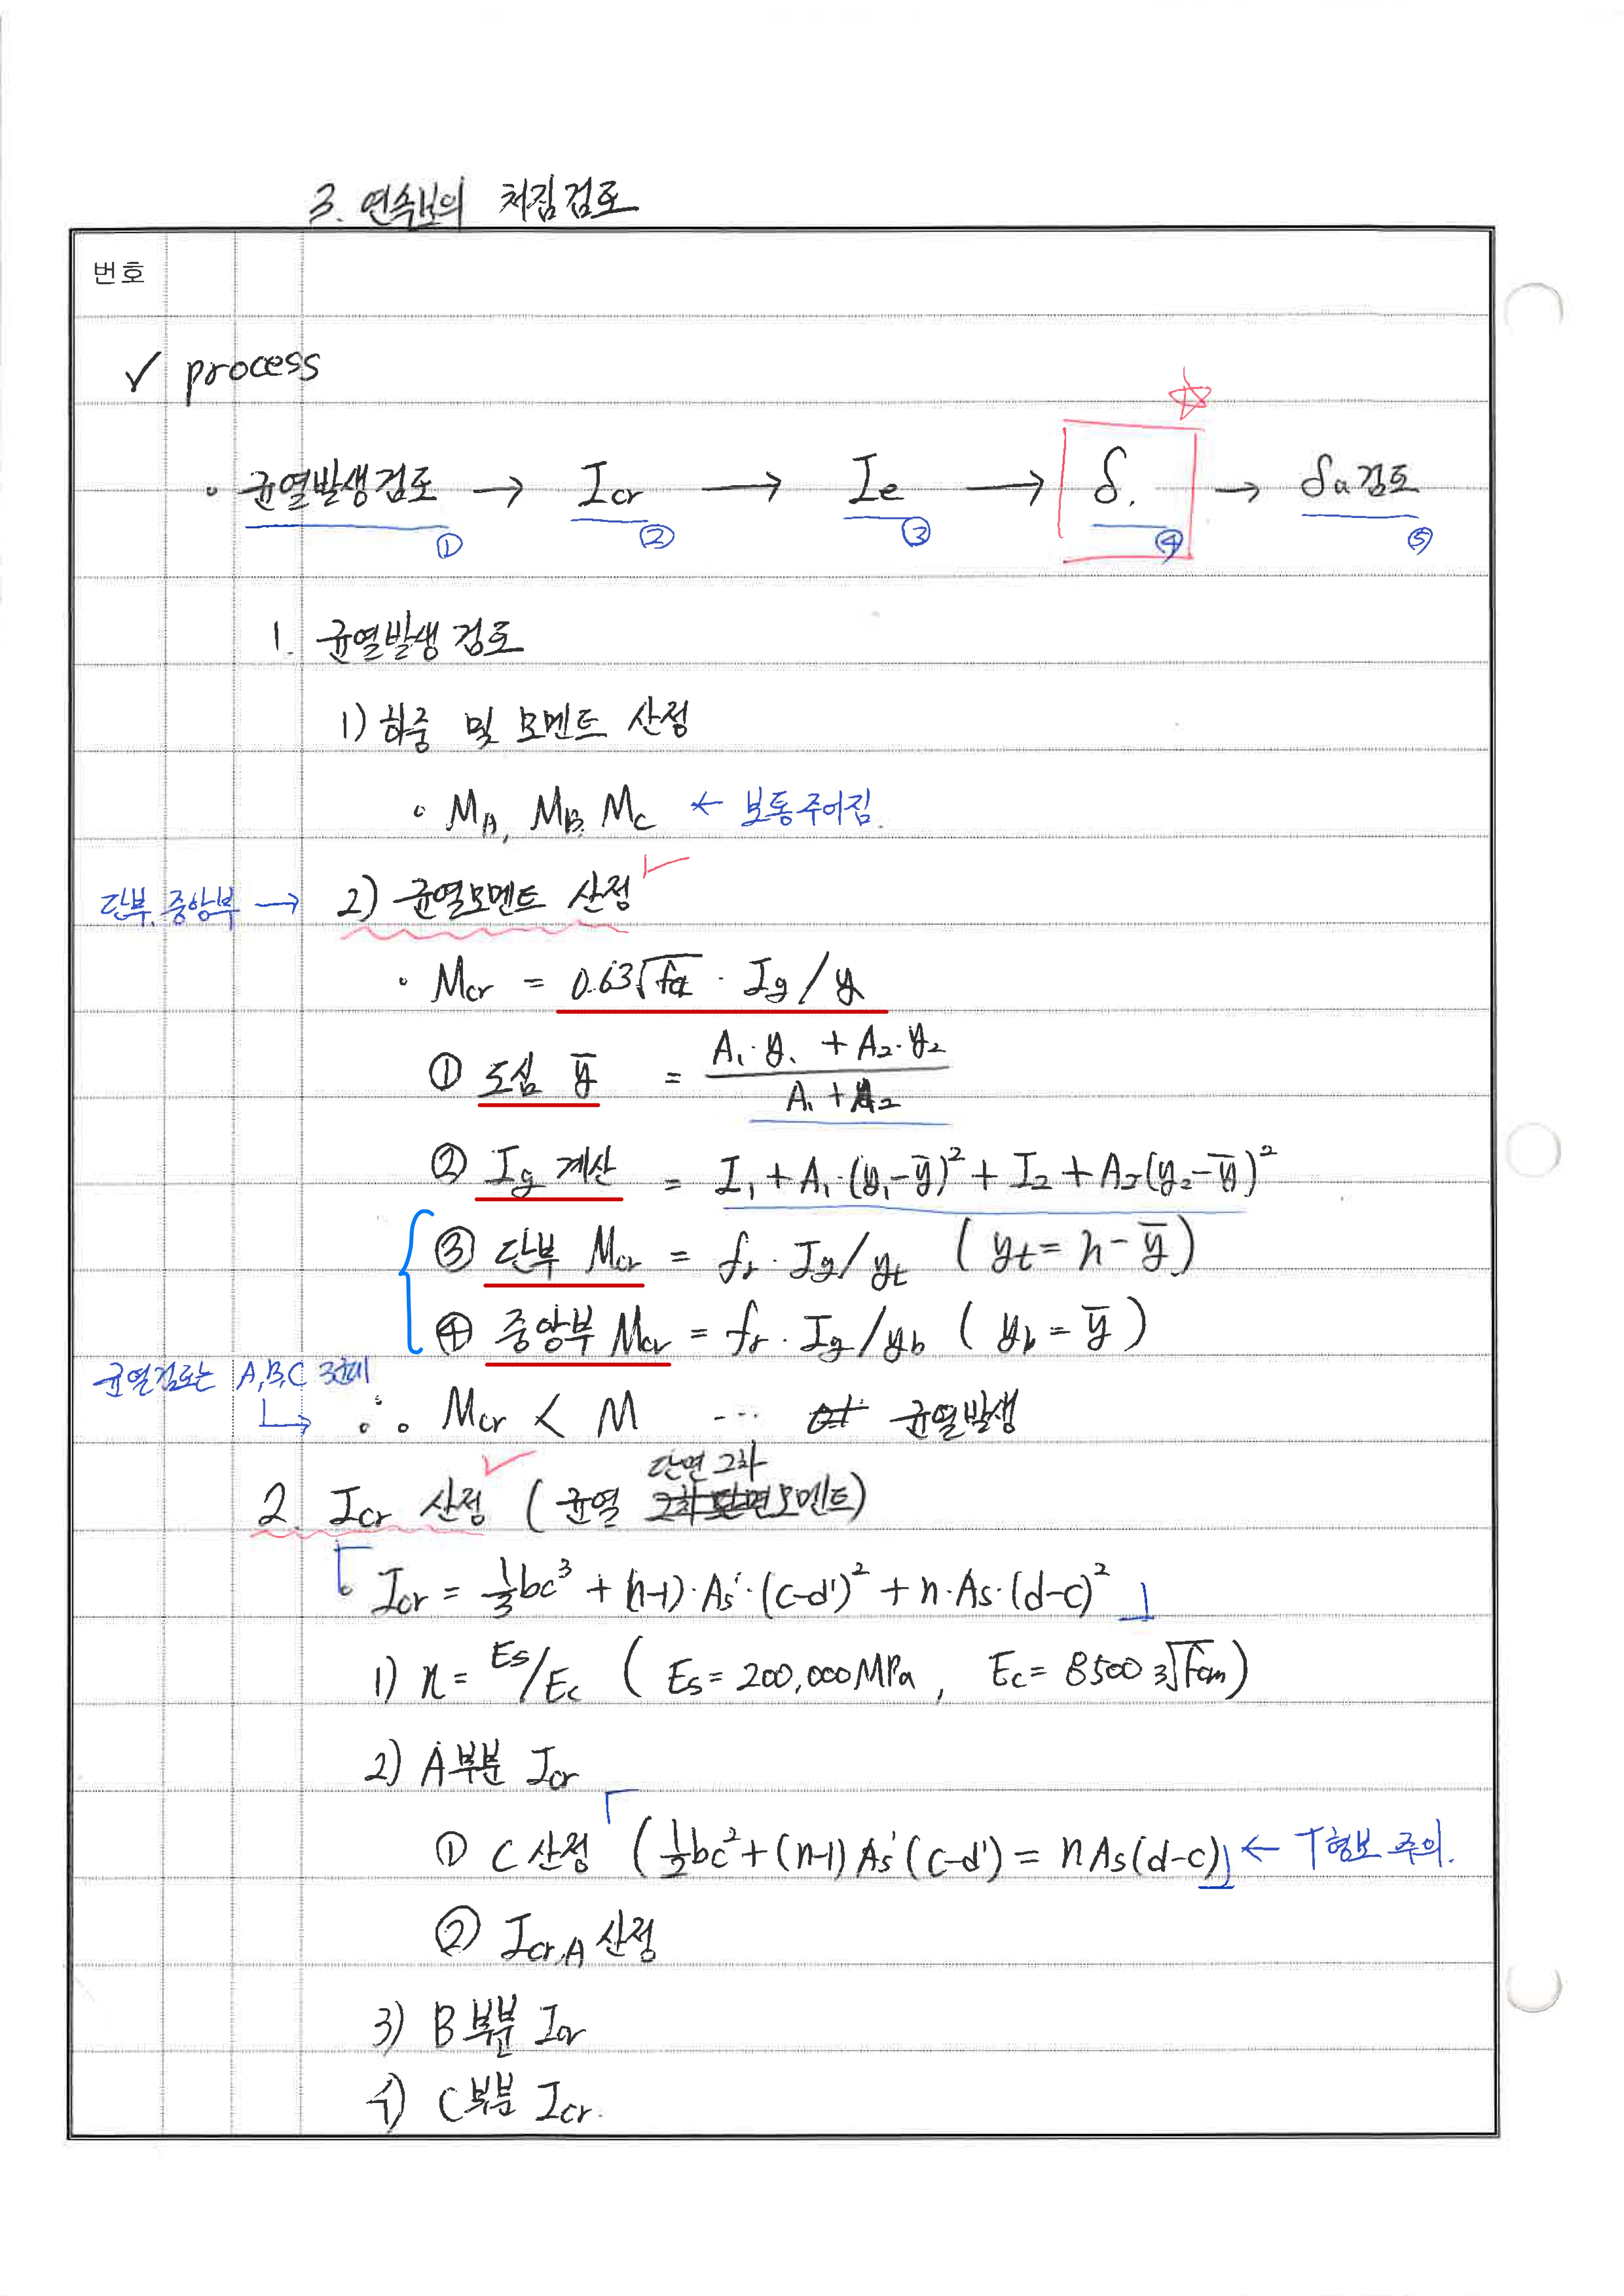 3. 연속보의 처짐검토
번호
✓ process
∘ 균열발생검토 → Icr → Ie → δ. → δa검토
① ② ③ ④ ⑤
1. 균열발생 검토
1) 하중 및 모멘트 산정
∘ MA, MB, MC ← 보통주어짐.
단부, 중앙부 → 2) 균열모멘트 산정 ✓
• Mcr = 0.63√fck · Ig / y
① 도심 ȳ = (A₁·y₁ + A₂·y₂) / (A₁ + A₂)
② Ig 계산 = I₁ + A₁·(y₁-ȳ)² + I₂ + A₂(y₂-ȳ)²
③ 단부 Mcr = fr · Ig/yt ( yt = h - ȳ )
④ 중앙부 Mcr = fr · Ig/yb ( yb = ȳ )
균열검토는 A,B,C 3단계
∴ ∘ Mcr < M ... 균열발생
단면 2차
2. Icr 산정 ( 균열 모멘트)
「∘ Icr = ⅓bc³ + (n-1)·As'·(c-d')² + n·As·(d-c)² 」
1) n = Es/Ec ( Es = 200,000MPa , Ec = 8500 ³√fcm )
2) A부분 Icr
① C 산정 「(½bc² + (n-1)As'(c-d') = nAs(d-c)」 ← T형보 주의.
② Icr,A 산정
3) B 부분 Icr
4) C부분 Icr.